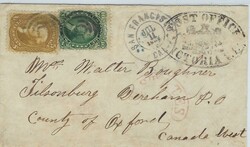 SAN FRANCISCO
CAL
POST OFFICE
VICTORIA V.I.
Mr. Walter Boughner
Tilsonburg Dereham P.O
County of Oxford
Canada West